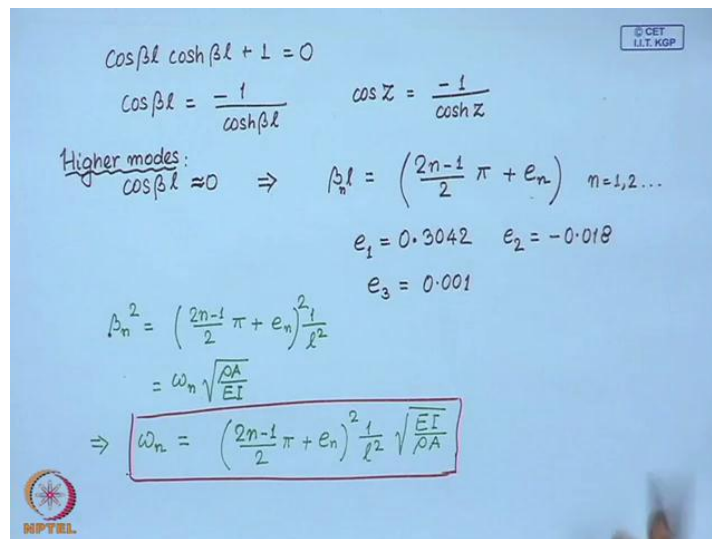 © CET
I.I.T. KGP
cosβl coshβl + 1 = 0
cosβl = -1/coshβl    cos Z = -1/cosh Z
Higher modes:
cosβl ≈ 0 ⇒ βₙl = ((2n-1)/2 π + eₙ) n=1,2...
e₁ = 0.3042 e₂ = -0.018
e₃ = 0.001
βₙ² = ((2n-1)/2 π + eₙ)² 1/l²
= ωₙ √(ρA/EI)
⇒ ωₙ = ((2n-1)/2 π + eₙ)² 1/l² √(EI/ρA)
NPTEL